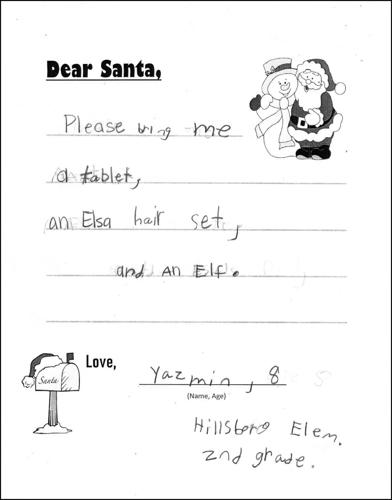 Dear Santa,
Please bring me
a tablet,
an Elsa hair set,
and an Elf.
Santa
Love,
Yazmin, 8
(Name, Age)
Hillsboro Elem.
2nd grade.